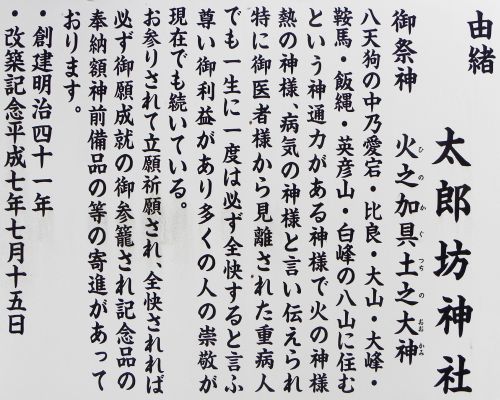 由緒
太郎坊神社
御祭神　火之加具土之大神
ひのかぐつちのおおかみ
八天狗の中乃愛宕・比良・大山・大峰・
鞍馬・飯縄・英彦山・白峰の八山に住む
という神通力がある神様で火の神様
熱の神様、病気の神様と言い伝えられ
特に御医者様から見離された重病人
でも一生に一度は必ず全快すると言ふ
尊い御利益があり多くの人の崇敬が
現在でも続いている。
お参りされて立願祈願され、全快されれば
必ず御願成就の御参籠され記念品の
奉納額神前備品の等の寄進があって
おります。
・創建明治四十一年
・改築記念平成七年七月十五日